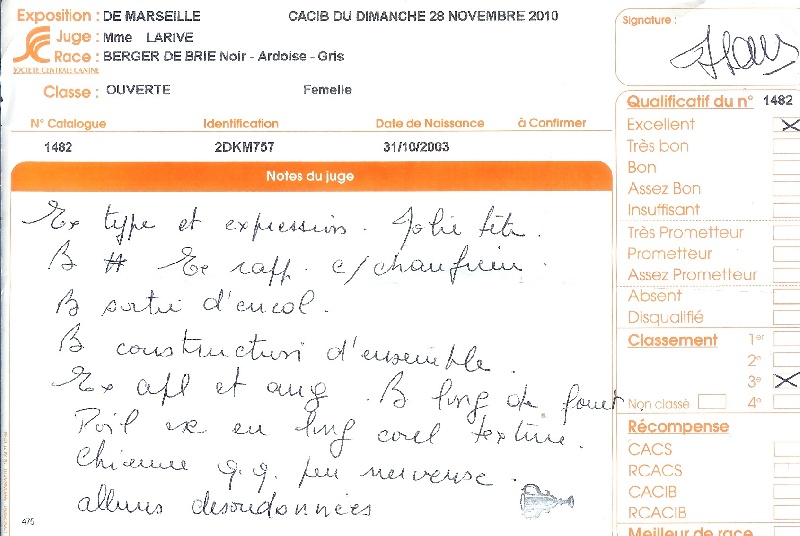 Exposition : DE MARSEILLE CACIB DU DIMANCHE 28 NOVEMBRE 2010
Juge : Mme LARIVE
Race : BERGER DE BRIE Noir - Ardoise - Gris
SOCIETE CENTRALE CANINE
Classe : OUVERTE Femelle
N° Catalogue Identification Date de Naissance à Confirmer
1482 2DKM757 31/10/2003
Notes du juge
Ex type et expression. Jolie tête.
B # Ex rapp. c/chanfrein.
B sortie d'encol.
B construction d'ensemble.
Ex apl et ang. B long de fouet.
Poil ex en long coul texture.
Chienne q.q. peu nerveuse.
allures desordonnées
475
Signature :
Qualificatif du n° 1482
Excellent X
Très bon
Bon
Assez Bon
Insuffisant
Très Prometteur
Prometteur
Assez Prometteur
Absent
Disqualifié
Classement 1er
2e
3e X
Non classé 4e
Récompense
CACS
RCACS
CACIB
RCACIB
Meilleur de race